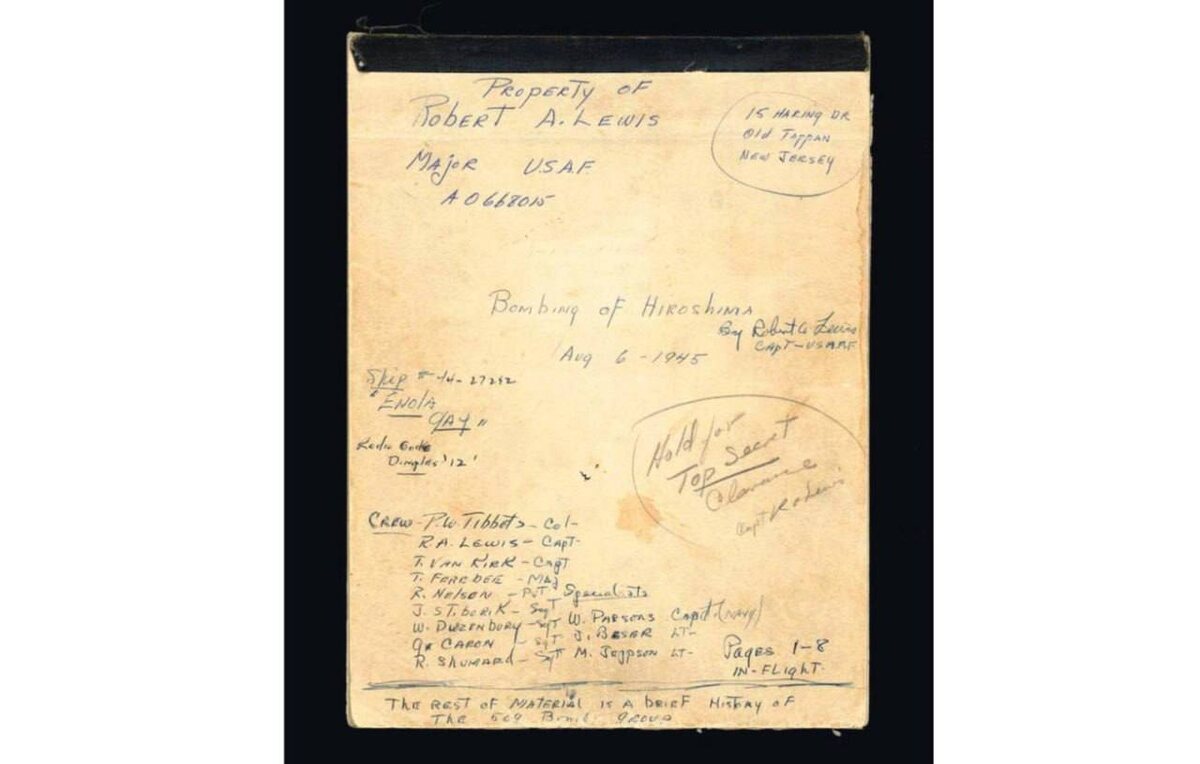 Property of
Robert A. Lewis
Major USAF
AO668015
15 Haring Dr
Old Tappan
New Jersey
Bombing of Hiroshima
By Robert A Lewis
Capt - USAAF
Aug 6 - 1945
Ship # 44-27292
"Enola
Gay"
Radio Code
Dimples '12'
Hold for
Top Secret
Clearance
Capt R A Lewis
Crew - P.W. Tibbets - Col -
R.A. Lewis - Capt -
T. Van Kirk - Capt
T. Ferebee - Maj
R. Nelson - Pvt Specialists
J. Stiborik - Sgt
W. Duzenbury - Sgt W. Parsons Capt. (Navy)
G. Caron - Sgt. J. Beser Lt -
R. Shumard - Sgt M. Jeppson Lt -
Pages 1-8
In-Flight
The rest of material is a brief history of
The 509 Bomb Group